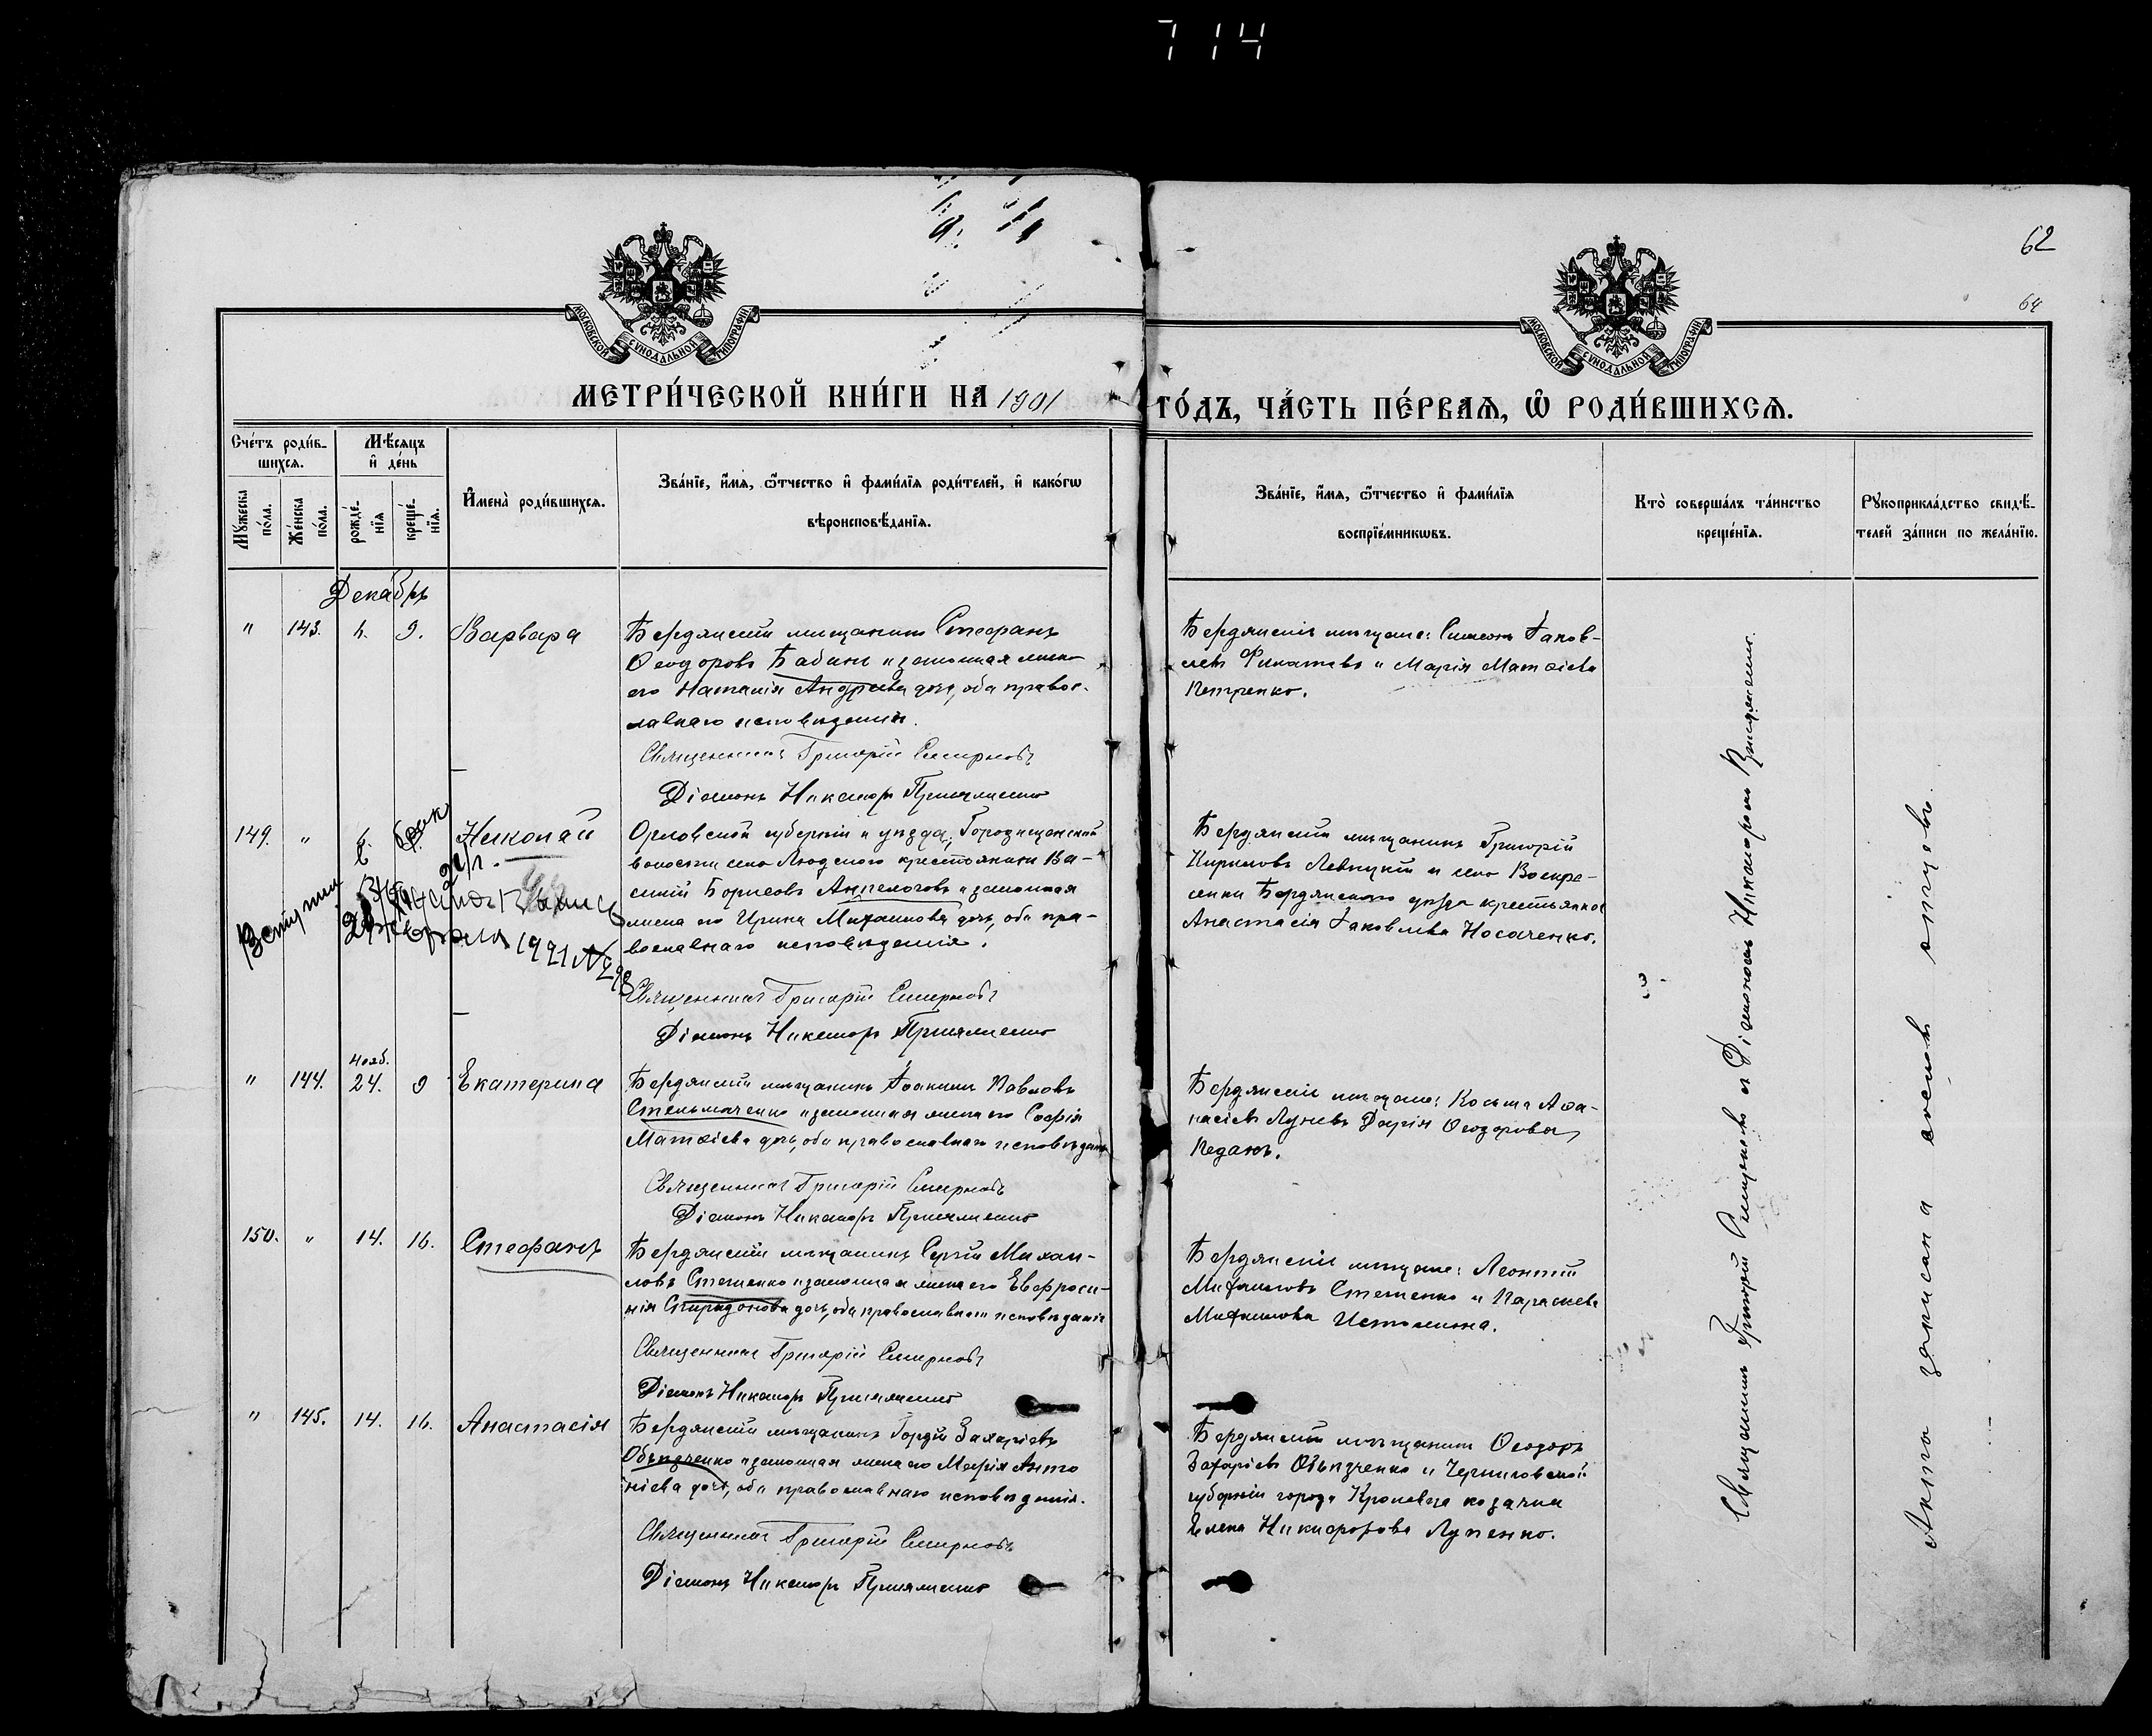 714
62
64
МОСКОВСКОЙ СѴНОДАЛЬНОЙ ТИПОГРАФІИ
МОСКОВСКОЙ СѴНОДАЛЬНОЙ ТИПОГРАФІИ
МЕТРИ́ЧЕСКОЙ КНИ́ГИ НА 1901 ГО́ДЪ, ЧА́СТЬ ПЕ́РВАѦ, Ѡ҆ РОДИ́ВШИХСѦ.
Сче́тъ роди́в-
шихсѧ.
Мѣ́сѧцъ
и҆ де́нь
Мꙋ́жеска по́ла.
Же́нска по́ла.
рожде́-
нїѧ
креще́-
нїѧ.
И҆мена̀ роди́вшихсѧ.
Зва́нїе, и҆́мѧ, ѻ҆́тчество и҆ фами́лїѧ роди́телей, и҆ како́гѡ
вѣроисповѣ́данїѧ.
Зва́нїе, и҆́мѧ, ѻ҆́тчество и҆ фами́лїѧ
воспрїе́мникѡвъ.
Кто̀ соверша́лъ та́инство
креще́нїѧ.
Рꙋкоприкла́дство свидѣ́-
телей за́писи по жела́нїю.
Декабрь
" 143. 4. 9. Варвара
Бердянскій мѣщанинъ Стефанъ
Ѳеодоровъ Бабинъ и законная жена
его Наталія Андреева дочь, оба правос-
лавнаго исповѣданія.
Священникъ Григорій Смирновъ
Діаконъ Никаноръ
Бердянскіе мѣщане: Симеонъ Іаков-
левъ Филатовъ и Марія Матѳіева
Петренко.
149. " 6. Николай
Орловской губерніи и уѣзда, Городищенской
волости села Людского крестьянинъ Ва-
силій Борисовъ Анпилоговъ и законная
жена его Ирина Михаилова дочь, оба пра-
вославнаго исповѣданія.
Вступил
брак
февраля 1921 №
Священникъ Григорій Смирновъ
Діаконъ Никаноръ
Бердянскій мѣщанинъ Григорій
Кириловъ Левицкій и села Воскре-
сенки Бердянскаго уѣзда крестьянка
Анастасія Іаковлева Носаченко.
" 144. нояб. 24. 9 Екатерина
Бердянскій мѣщанинъ Іоакимъ Павловъ
Стельмаченко и законная жена его Софія
Матѳіева дочь, оба православнаго исповѣданія
Священникъ Григорій Смирновъ
Діаконъ Никаноръ
Бердянскіе мѣщане: Косьма Аѳа-
насіевъ Луневъ Дарія Ѳеодорова
Педанъ.
150. " 14. 16. Стефанъ
Бердянскій мѣщанинъ Сергій Михаи-
ловъ Стеценко и законная жена его Евфроси-
нія Спиридонова дочь, оба православнаго исповѣданія
Священникъ Григорій Смирновъ
Діаконъ Никаноръ
Бердянскіе мѣщане: Леонтій
Михаиловъ Стеценко и Параскева
Михаилова Истомина.
" 145. 14. 16. Анастасія
Бердянскій мѣщанинъ Гордій Захаріевъ
и законная жена его Марія Анто
ніева дочь, оба православнаго исповѣданія.
Священникъ Григорій Смирновъ
Діаконъ Никаноръ
Бердянскій мѣщанинъ Ѳеодоръ
Захаріевъ и Черниговской
губерніи города Кролевца козачка
Елена Никифорова Лупенко.
Священникъ Григорій съ Діакономъ Никаноромъ
Акта записана согласно